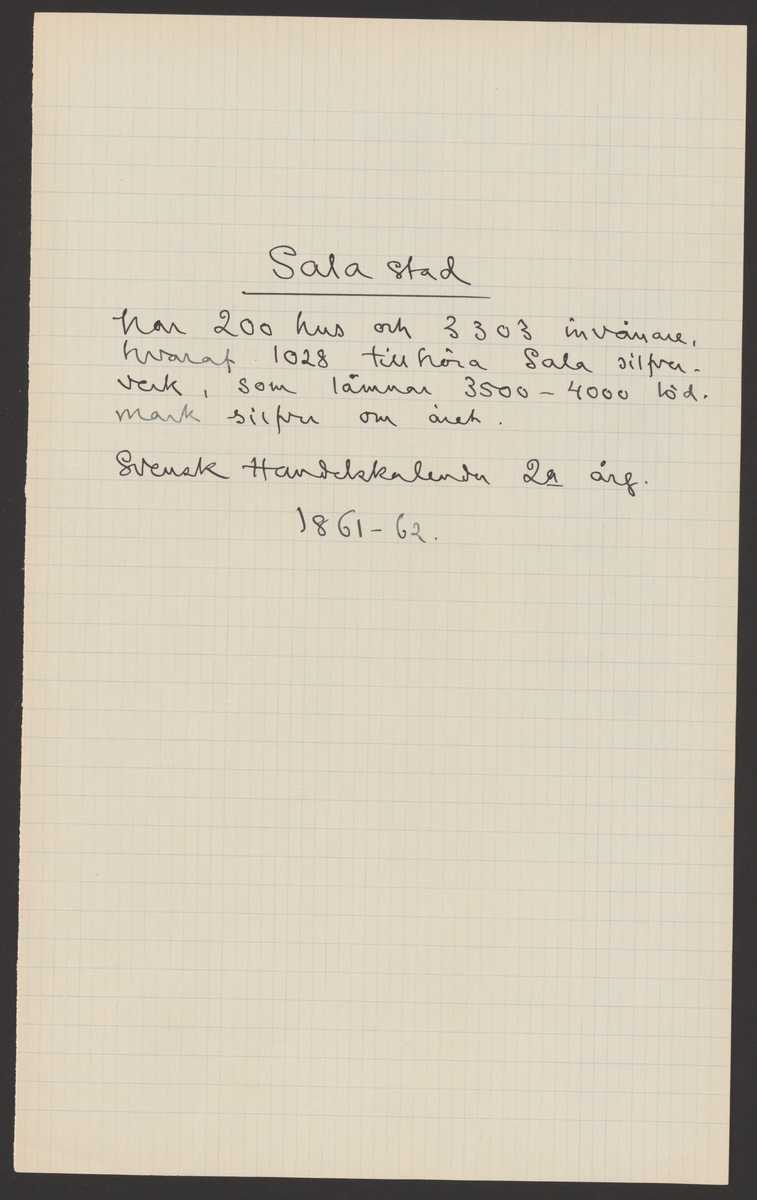 Sala stad
har 200 hus och 3303 invånare,
hvaraf 1028 tillhöra Sala silfver-
verk, som lämnar 3500 - 4000 löd.
mark silfver om året.
Svensk Handelskalender 2a årg.
1861 - 62.